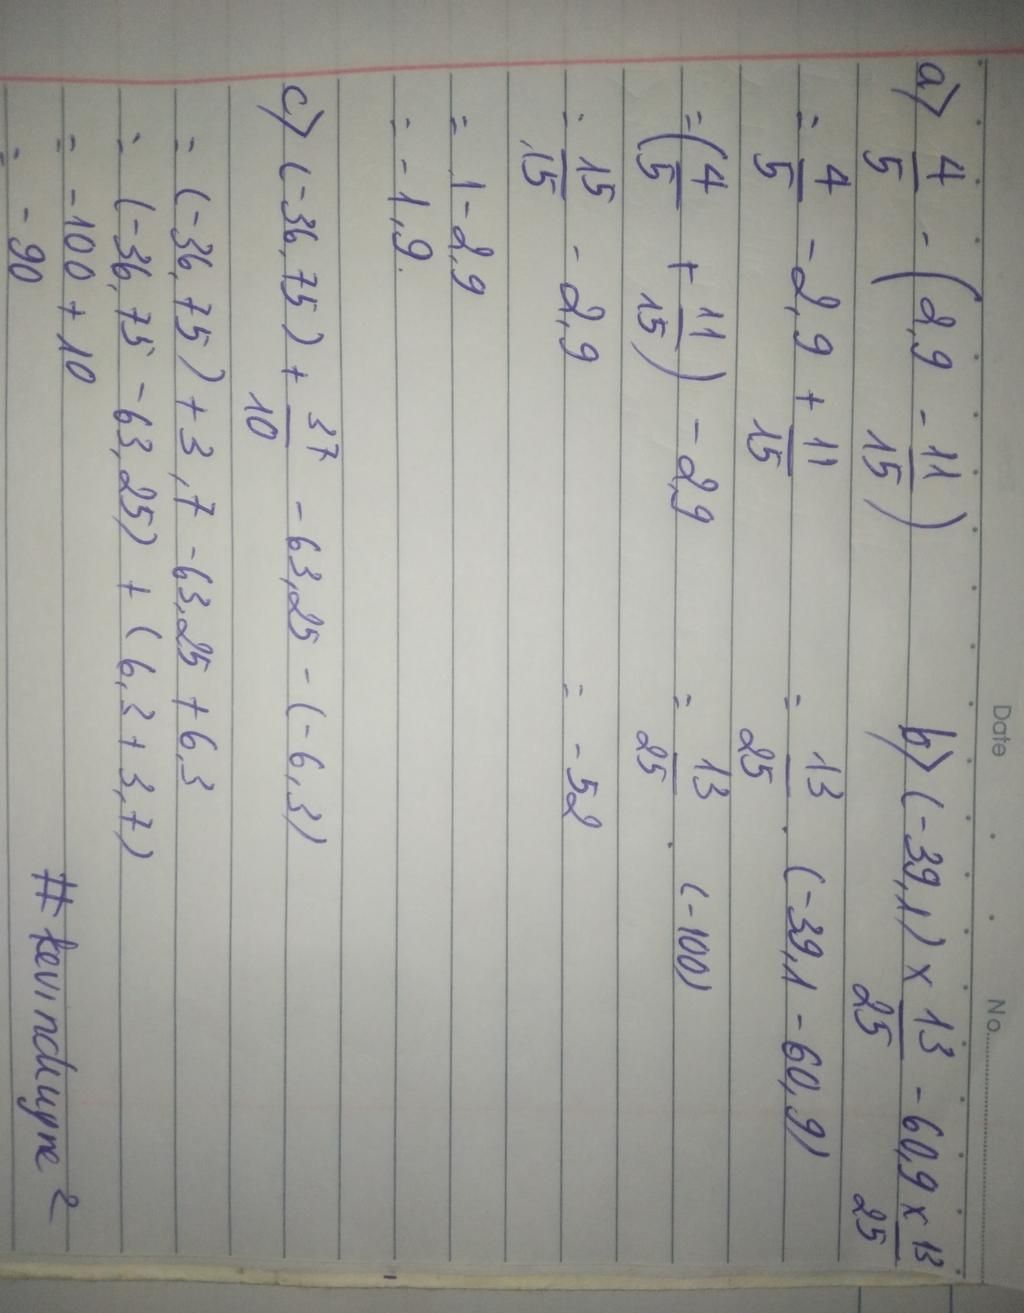 Date No.
a) 4/5 - (2,9 - 11/15)
= 4/5 - 2,9 + 11/15
= (4/5 + 11/15) - 2,9
= 15/15 - 2,9
= 1 - 2,9
= -1,9.
b) (-39,1) x 13/25 - 60,9 x 13/25
= 13/25 . (-39,1 - 60,9)
= 13/25 . (-100)
= -52
c) (-36,75) + 37/10 - 63,25 - (-6,3)
= (-36,75) + 3,7 - 63,25 + 6,3
= (-36,75 - 63,25) + (6,3 + 3,7)
= -100 + 10
= -90